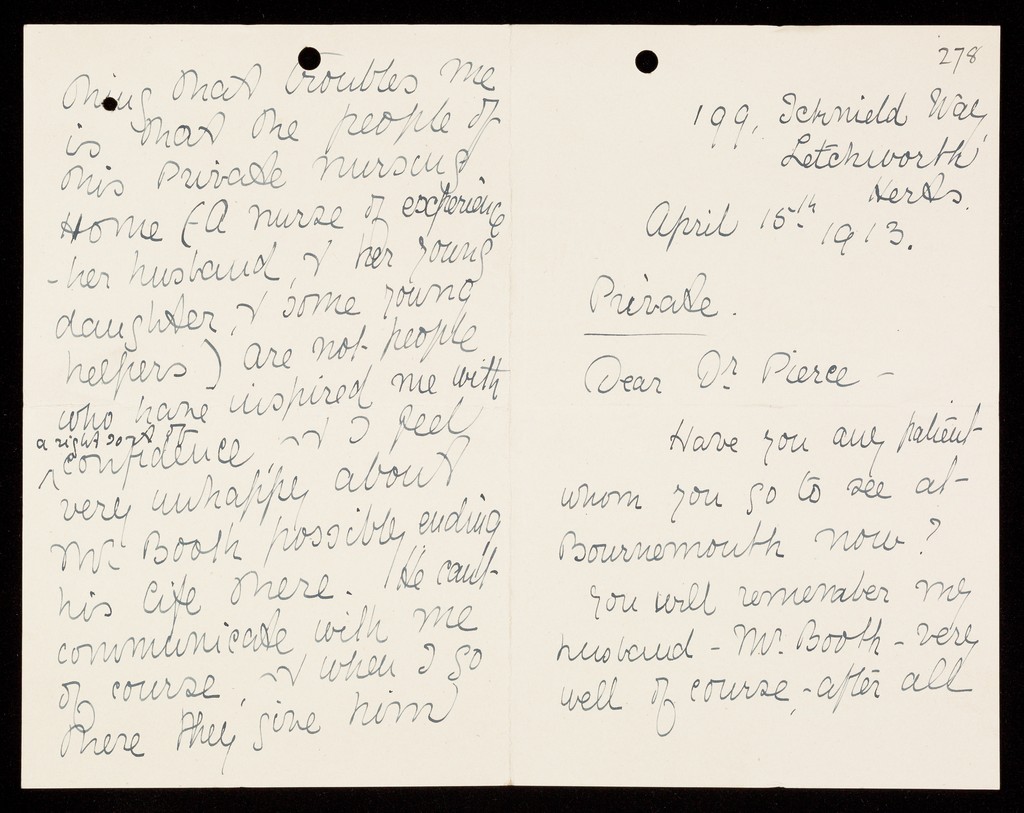 278
199, Icknield Way
Letchworth
Herts.
April 15th 1913.
Private.
Dear Dr Pierce -
Have you any patient
whom you go to see at
Bournemouth now?
You will remember my
husband - Mr. Booth - very
well of course, - after all
thing that troubles me
is that the people of
this Private Nursing
Home (- a nurse of experience
- her husband, & her young
daughter, & some young
helpers) are not people
who have inspired me with
a right sort of
confidence & I feel
very unhappy about
Mr. Booth possibly ending
his life there. He can't
communicate with me
of course, & when I go
there they give him